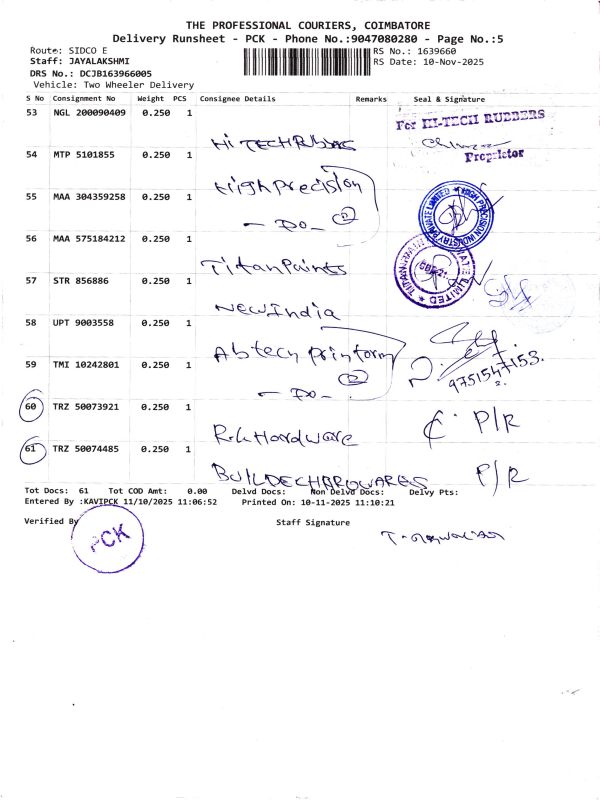 THE PROFESSIONAL COURIERS, COIMBATORE
Delivery Runsheet - PCK - Phone No.:9047080280 - Page No.:5
Route: SIDCO E
RS No.: 1639660
Staff: JAYALAKSHMI
RS Date: 10-Nov-2025
DRS No.: DCJB163966005
Vehicle: Two Wheeler Delivery
S No Consignment No Weight PCS Consignee Details Remarks Seal & Signature
53 NGL 200090409 0.250 1
For HI-TECH RUBBERS
Hi TECH Rubbers
Proprietor
54 MTP 5101855 0.250 1
High Precision
55 MAA 304359258 0.250 1
- Do - 2
HIGH PRECISION INDUSTRY PRIVATE LIMITED
56 MAA 575184212 0.250 1
Titan Paints
LIMITED
57 STR 856886 0.250 1
New India
58 UPT 9003558 0.250 1
Abtech printform
59 TMI 10242801 0.250 1
9751547153.
- Do - 2
60 TRZ 50073921 0.250 1
P/R
R.k Hardware
61 TRZ 50074485 0.250 1
P/R
BUILDECHARDWARES
Tot Docs: 61 Tot COD Amt: 0.00 Delvd Docs: Non Delvd Docs: Delvy Pts:
Entered By :KAVIPCK 11/10/2025 11:06:52 Printed On: 10-11-2025 11:10:21
Verified By Staff Signature
PCK